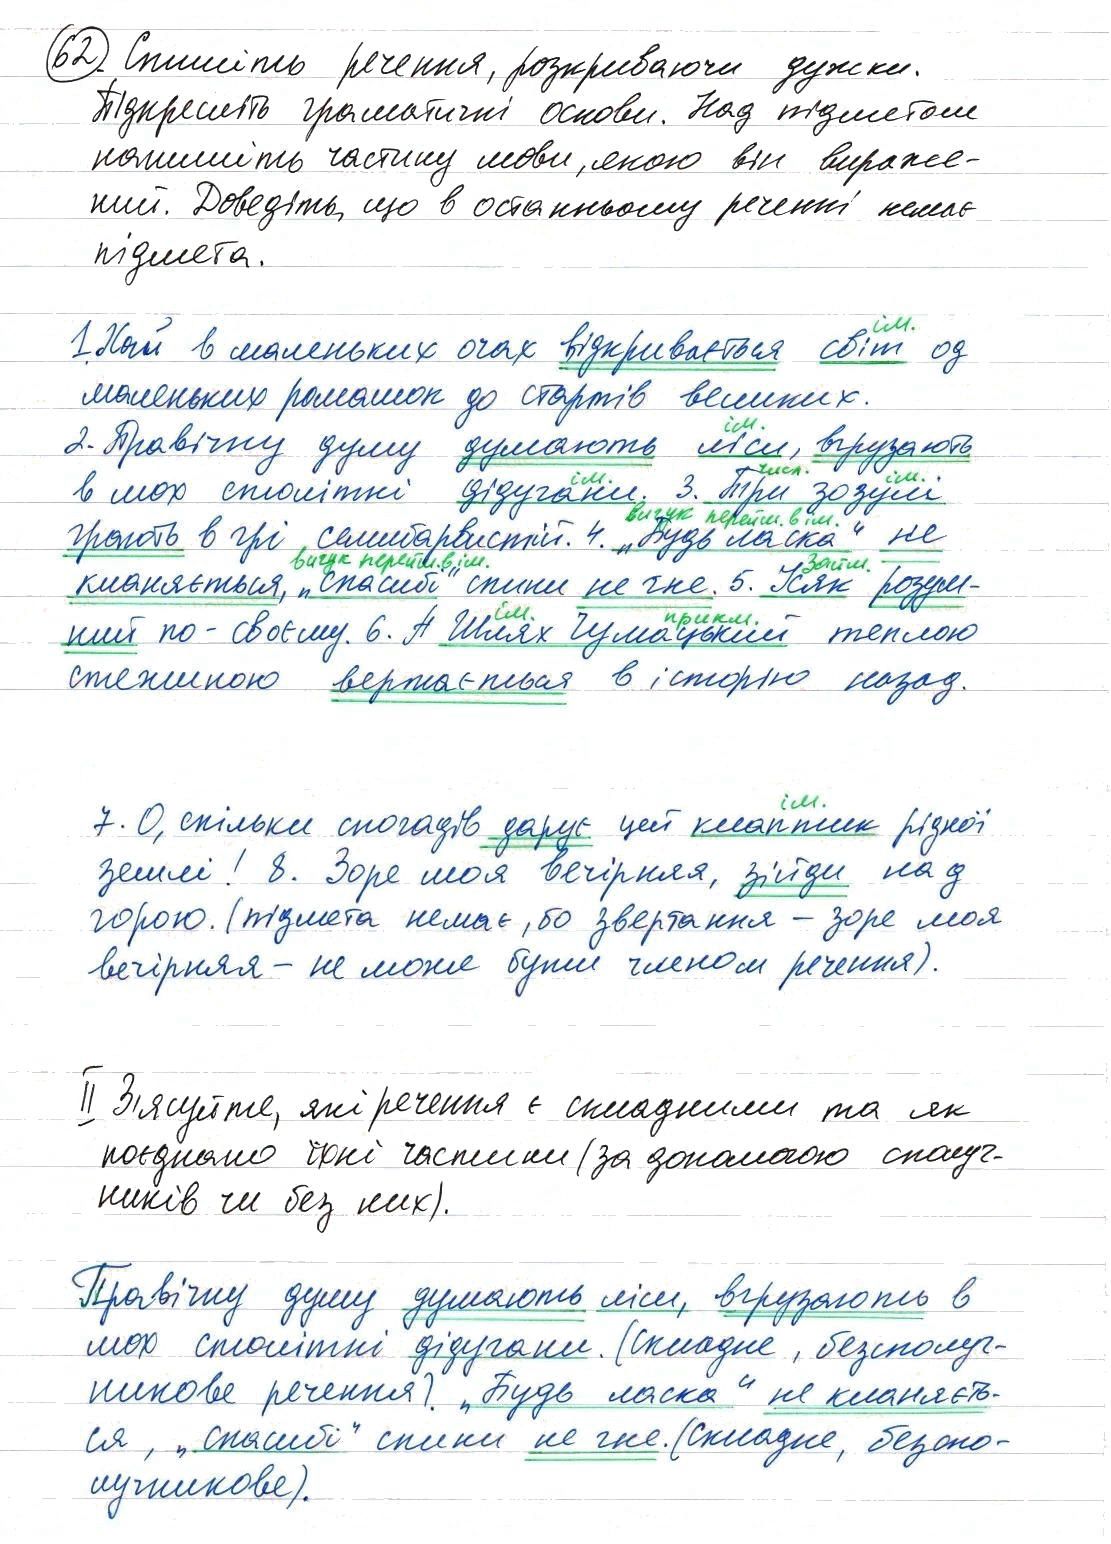 62. Спишіть речення, розкриваючи дужки.
Підкресліть граматичні основи. Над підметом
напишіть частину мови, якою він вираже-
ний. Доведіть, що в останньому реченні немає
підмета.
ім.
1. Хай в маленьких очах відкривається світ од
маленьких ромашок до стартів великих.
ім.
2. Правічну думу думають ліси, вгрузають
ім. числ. ім.
в мох столітні дідугани. 3. Три зозулі
вигук перейш. в ім.
грають в грі семитарвистій. 4. „Будь ласка“ не
вигук перейш. в ім. займ.
кланяється, „спасибі“ спини не гне. 5. Усяк розум-
ім. прикм.
ний по-своєму. 6. А Шлях Чумацький теплою
стежиною вертається в історію назад.
ім.
7. О, скільки спогадів дарує цей клаптик рідної
землі! 8. Зоре моя вечірняя, зійди над
горою. (підмета немає, бо звертання – зоре моя
вечірняя – не може бути членом речення).
II З'ясуйте, які речення є складними та як
поєднано їхні частини (за допомогою сполуч-
ників чи без них).
Правічну думу думають ліси, вгрузають в
мох столітні дідугани. (Складне, безсполуч-
никове речення). „Будь ласка“ не кланяєть-
ся, „спасибі“ спини не гне. (Складне, безспо-
лучникове).